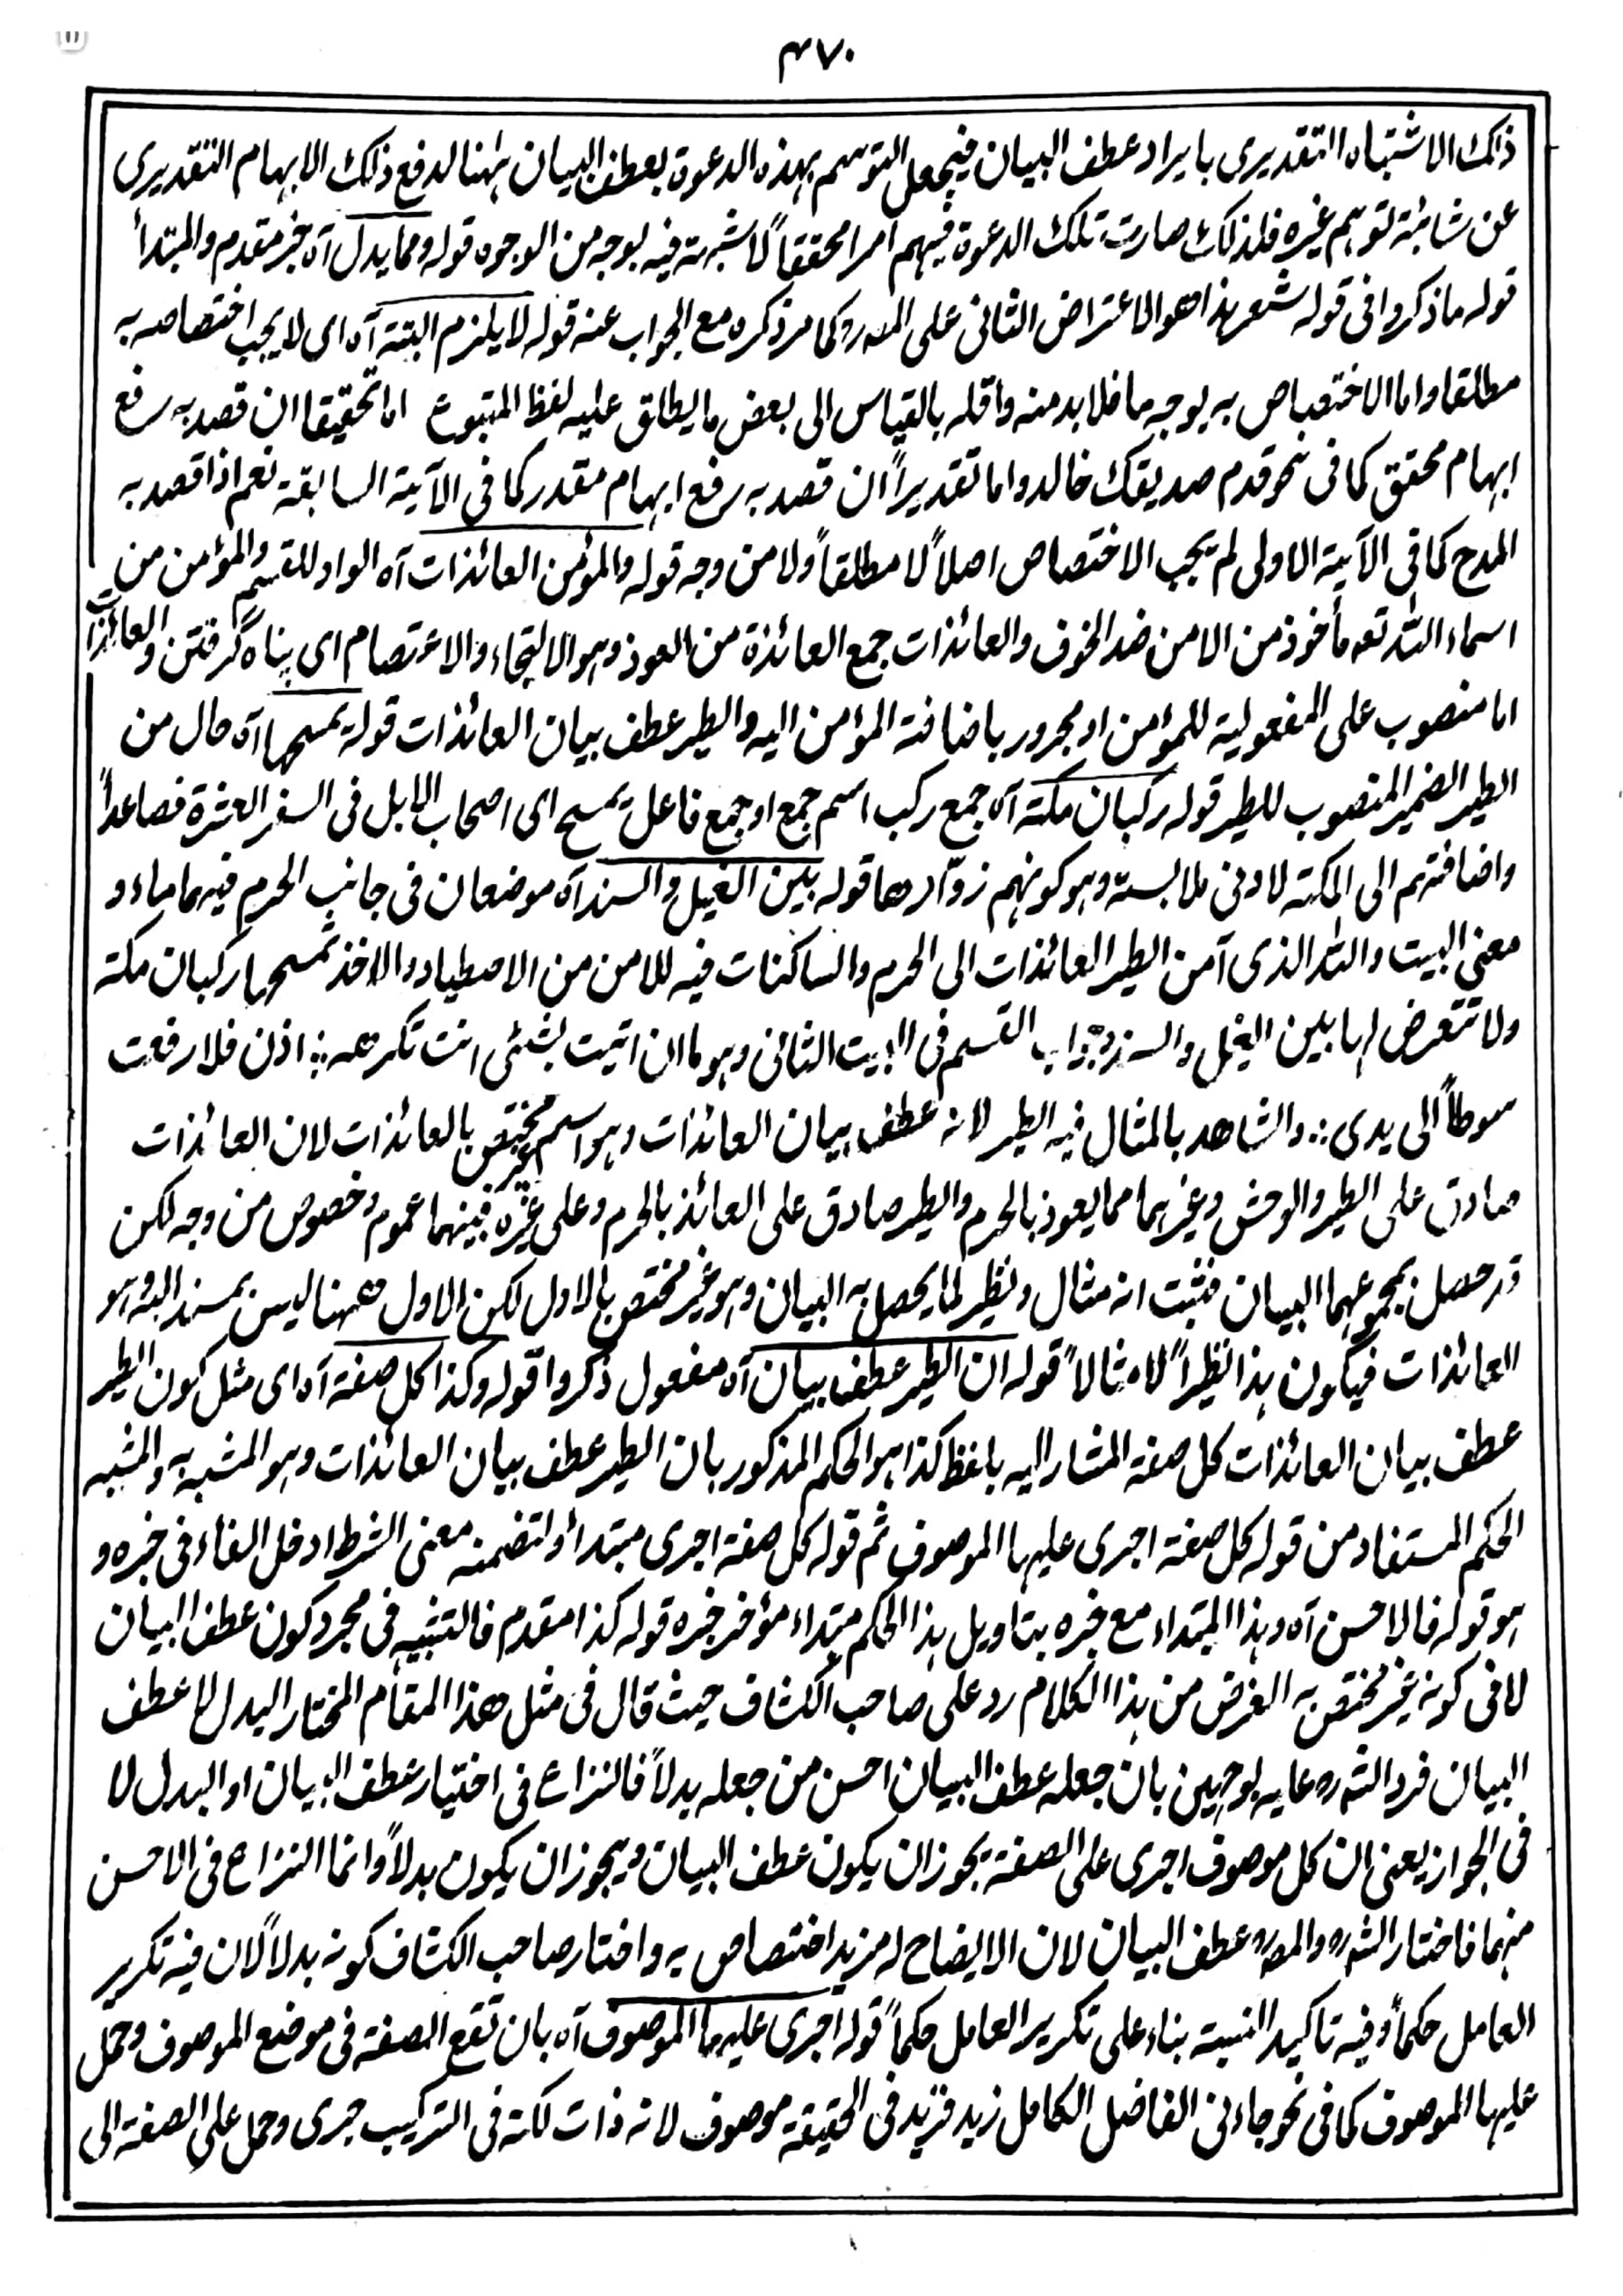 ۴۷۰
ذلك الاشتباه التقديرى بايراد عطف البيان فيجعل التوسم بهذه الدعوة بعطف البيان ههنا لدفع ذلك الابهام التقديرى
عن شائبة توهم غيره فلذلك صارت تلك الدعوة فيهم امرا محققاً لا شبهة فيه بوجه من الوجوه قوله ومما يدل آه خبر مقدم والمبتدأ
قوله ما ذكروا فى قوله شعر هذا هو الاعتراض الثانى على المصره كما مر ذكره مع الجواب عنه قوله لا يلزم البتة آه اى لا يجب اختصاصه به
مطلقا واما الاختصاص به بوجه ما فلا بد منه واقله بالقياس الى بعض ما يطلق عليه لفظ المتبوع اما تحقيقا ان قصد به رفع
ابهام محقق كما فى نحو قدم صديقك خالد واما تقديراً ان قصد به رفع ابهام مقدر كما فى الآية السابقة نعم اذا قصد به
المدح كما فى الآية الاولى لم يجب الاختصاص اصلاً لا مطلقاً ولا من وجه قوله والمؤمن العائذات آه الواو للقسم والمؤمن من
اسماء الله تعه مأخوذ من الامن ضد الخوف والعائذات جمع العائذة من العوذ وهو الالتجاء والاعتصام اى پناه گرفتن والعائذات
اما منصوب على المفعولية للمؤمن او مجرور باضافة المؤمن اليه والطير عطف بيان العائذات قوله تمسحها آه حال من
الطير الضمير المنصوب للطير قوله ركبان مكة آه جمع ركب اسم جمع او جمع فاعل تمسح اى اصحاب الابل فى السفر العشرة فصاعداً
واضافتهم الى المكة لادنى ملابسة وهو كونهم زوّارها قوله بين الغيل والسند آه موضعان فى جانب الحرم فيهما ماء و
معنى البيت والله الذى آمن الطير العائذات الى الحرم والساكنات فيه للامن من الاصطياد والاخذ تمسحها ركبان مكة
ولا تتعرض لها بين الغيل والسند وجواب القسم فى البيت الثانى وهو ما ان اتيت بشئى انت تكرهه ∴ اذن فلا رفعت
سوطاً الى يدى ∴ والشاهد بالمثال فيه الطير لانه عطف بيان العائذات وهو اسم غير مختص بالعائذات لان العائذات
صادق على الطير والوحش وغيرهما مما يعوذ بالحرم والطير صادق على العائذ بالحرم وعلى غيره فبينهما عموم وخصوص من وجه لكن
قد حصل بمجموعهما البيان فثبت انه مثال ونظير لما يحصل به البيان وهو غير مختص بالاول لكن الاول ههنا ليس بمسند اليه وهو
العائذات فيكون هذا نظيراً لا مثالاً قوله ان الطير عطف بيان آه مفعول ذكروا قوله وكذا كل صفة آه اى مثل كون الطير
عطف بيان العائذات كل صفة المشار اليه بلفظ كذا هو الحكم المذكور بان الطير عطف بيان العائذات وهو المشبه به والمشبه
الحكم المستفاد من قوله كل صفة اجرى عليها الموصوف ثم قوله كل صفة اجرى مبتدأ ولتضمنه معنى الشرط ادخل الفاء فى خبره و
هو قوله فالاحسن آه وهذا المبتداء مع خبره بتاويل هذا الحكم مبتداء مؤخر خبره قوله كذا مقدم فالتشبيه فى مجرد كون عطف البيان
لا فى كونه غير مختص به الغرض من هذا الكلام رد على صاحب الكشاف حيث قال فى مثل هذا المقام المختار البدل لا عطف
البيان فرد الشره عليه بوجهين بان جعله عطف البيان احسن من جعله بدلاً فالنزاع فى اختيار عطف البيان او البدل لا
فى الجواز يعنى ان كل موصوف اجرى على الصفة يجوز ان يكون عطف البيان ويجوز ان يكون بدلاً وانما النزاع فى الاحسن
منهما فاختار الشره والمصره عطف البيان لان الايضاح له مزيد اختصاص به واختار صاحب الكشاف كونه بدلاً لان فيه تكرير
العامل حكماً وفيه تاكيد النسبة بناء على تكرير العامل حكماً قوله اجرى عليها الموصوف آه بان تقع الصفة فى موضع الموصوف وحمل
عليها الموصوف كما فى نحو جاءنى الفاضل الكامل زيد فزيد فى الحقيقة موصوف لانه ذات لكنه فى التركيب جرى وحمل على الصفة الى